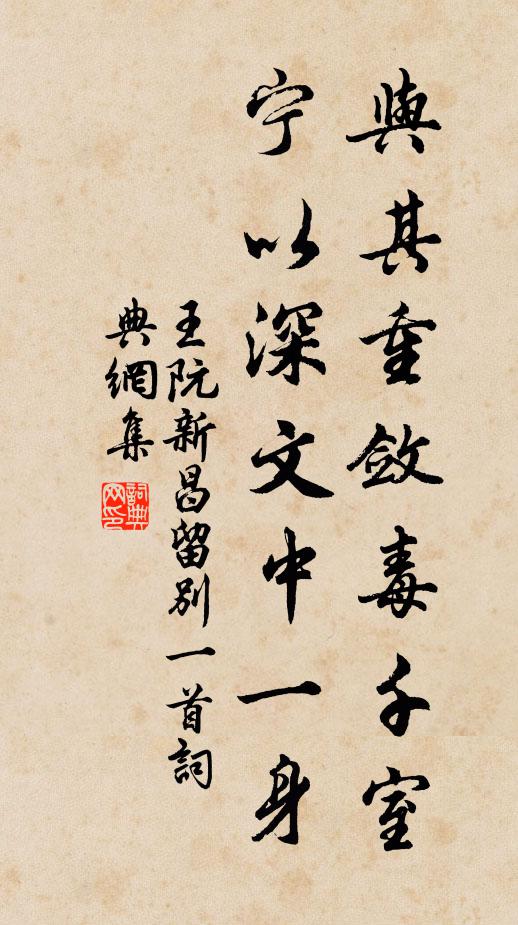 與其重斂毒千室
宁以深文中一身
王阮新昌留别一首詞
典網集
詞典
网印